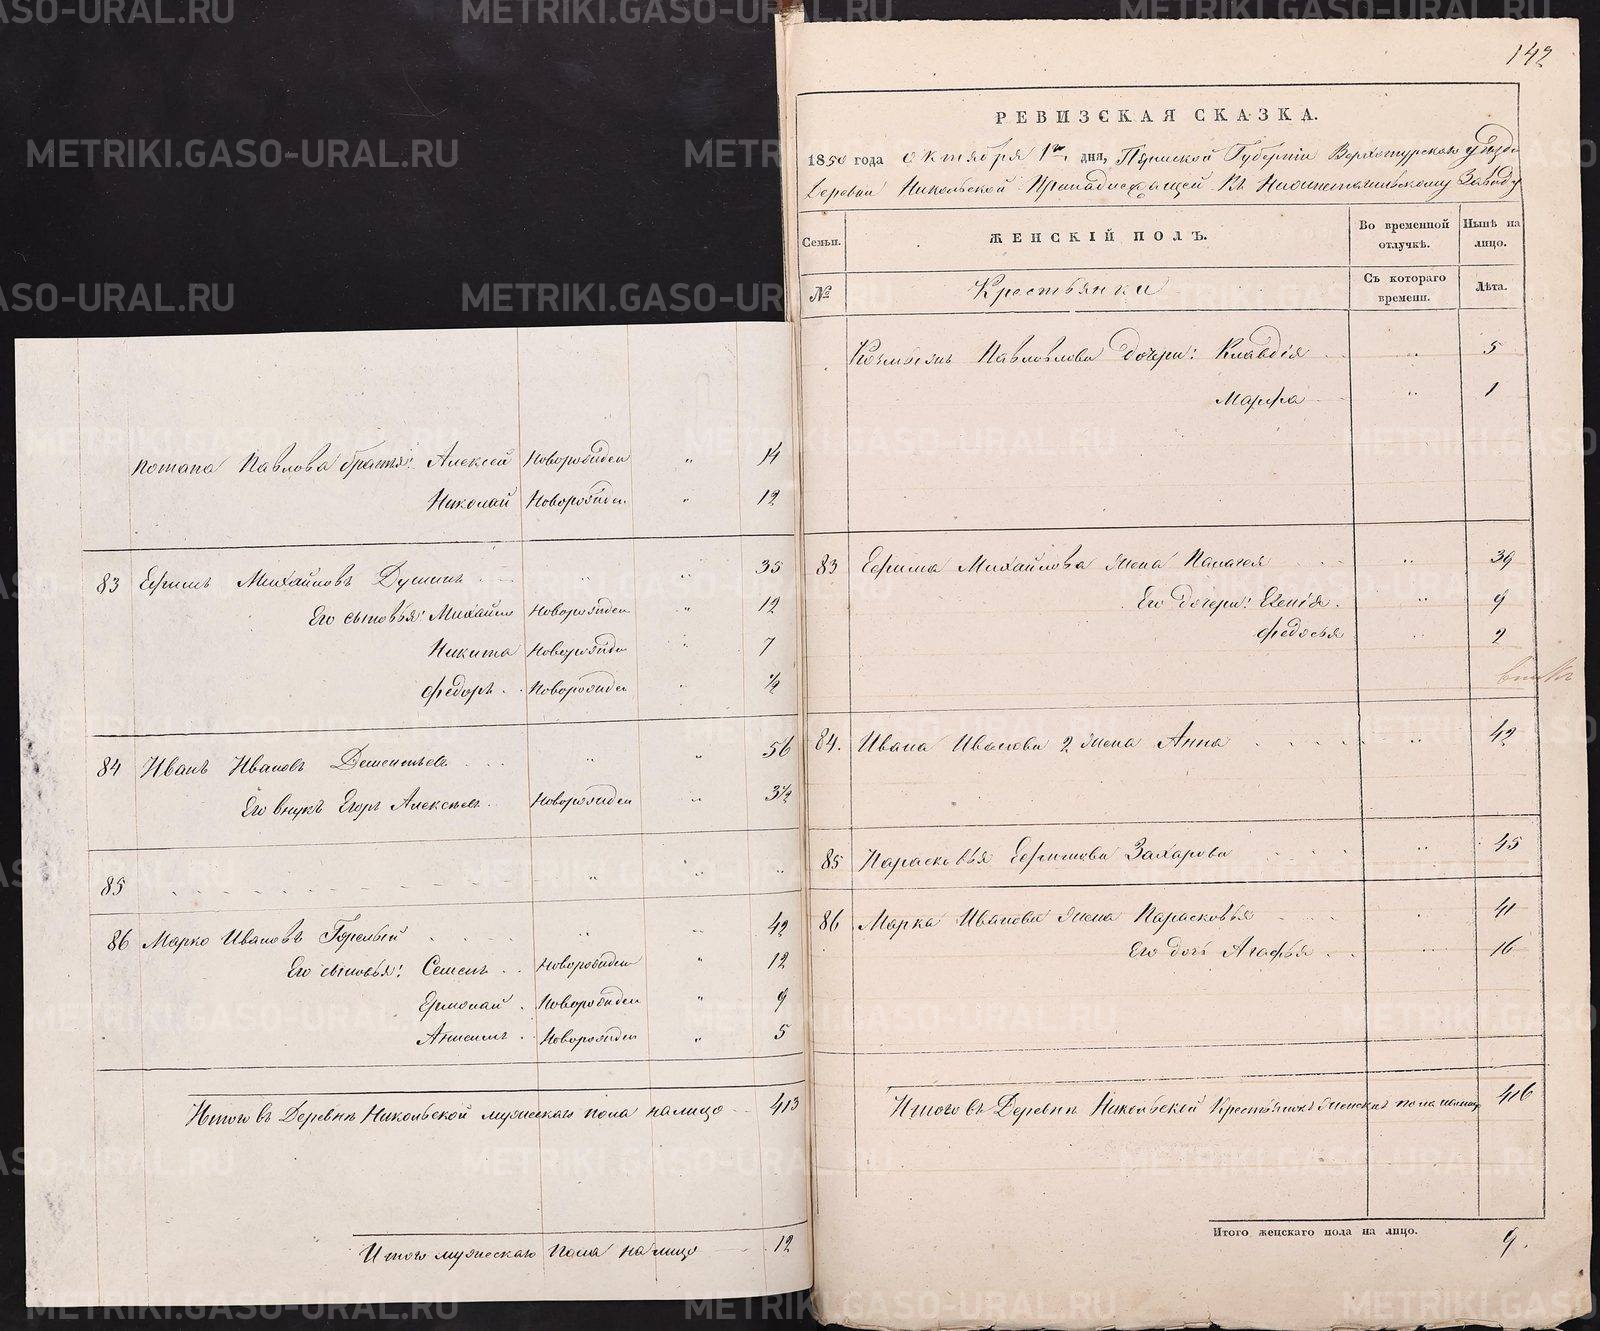 Потапа Павлова братья: Алексей Новорожден " 14
Николай Новорожден " 12
83 Ефимъ Михайловъ Душинъ " " 35
Его сыновья: Михайло Новорожден " 12
Никита Новорожден " 7
Федоръ Новорожден " ½
84 Иванъ Ивановъ Дементьев " " 56
Его внукъ Егоръ Алексѣевъ Новорожден " 3½
85 " " "
86 Марко Ивановъ Горелый " " 42
Его сыновья: Семенъ Новорожден " 12
Ермолай Новорожден " 9
Анисимъ Новорожден " 5
Итого въ Деревнѣ Никольской мужескаго пола налицо 413
Итого мужескаго пола на лицо 12
142
РЕВИЗСКАЯ СКАЗКА.
1850 года октября 1го дня, Пермской Губерніи Верхотурскаго уѣзда
Деревни Никольской Принадлежащей Къ Нижнетагильскому Заводу
Семьи. ЖЕНСКІЙ ПОЛЪ. Во временной отлучкѣ. Нынѣ на лицо.
№ Крестьянки Съ котораго времени. Лѣта.
Павлова дочери: Клавдія " 5
Марфа " 1
83 Ефима Михайлова жена Палагея " 39
Его дочери: Евгенія " 9
Федосья " 2
84. Ивана Иванова 2 жена Анна " 42
85 Парасковья Ефимова Захарова " 45
86 Марка Иванова жена Парасковья " 41
Его дочь Агафья " 16
Итого въ Деревнѣ Никольской Крестьянокъ женска пола налицо 416
Итого женскаго пола на лицо. 9.
METRIKI.GASO-URAL.RU